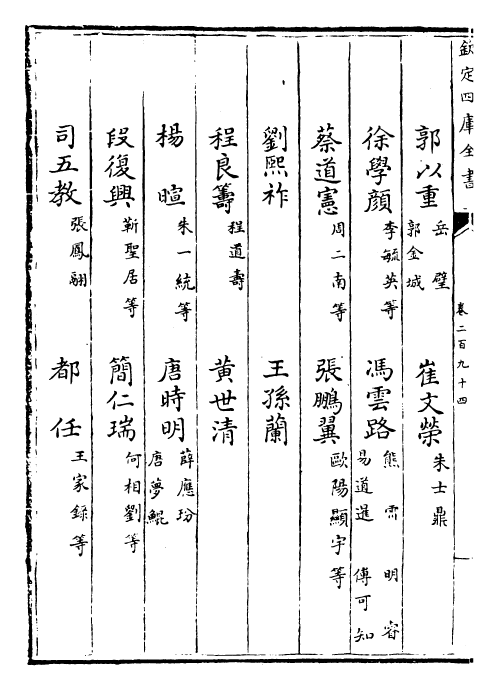 欽定四庫全書
卷二百九十四
一
郭以重 岳璧 郭金城 崔文榮 朱士鼎
徐學顔 李毓英等 馮雲路 熊䨇 明睿 易道暹 傅可知
蔡道憲 周二南等 張鵬翼 歐陽顯宇等
劉熙祚 王孫蘭
程良籌 程道壽 黄世清
楊暄 朱一統等 唐時明 薛應玢 唐夢鯤
段復興 靳聖居等 簡仁瑞 何相劉等
司五教 張鳳翮 都任 王家録等